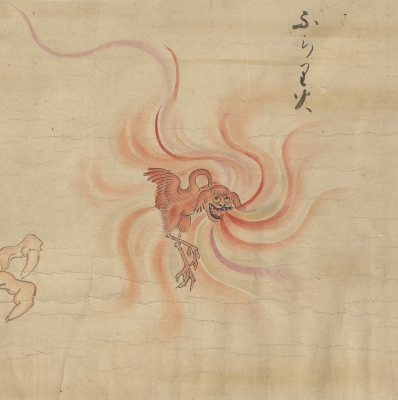 ふらり火